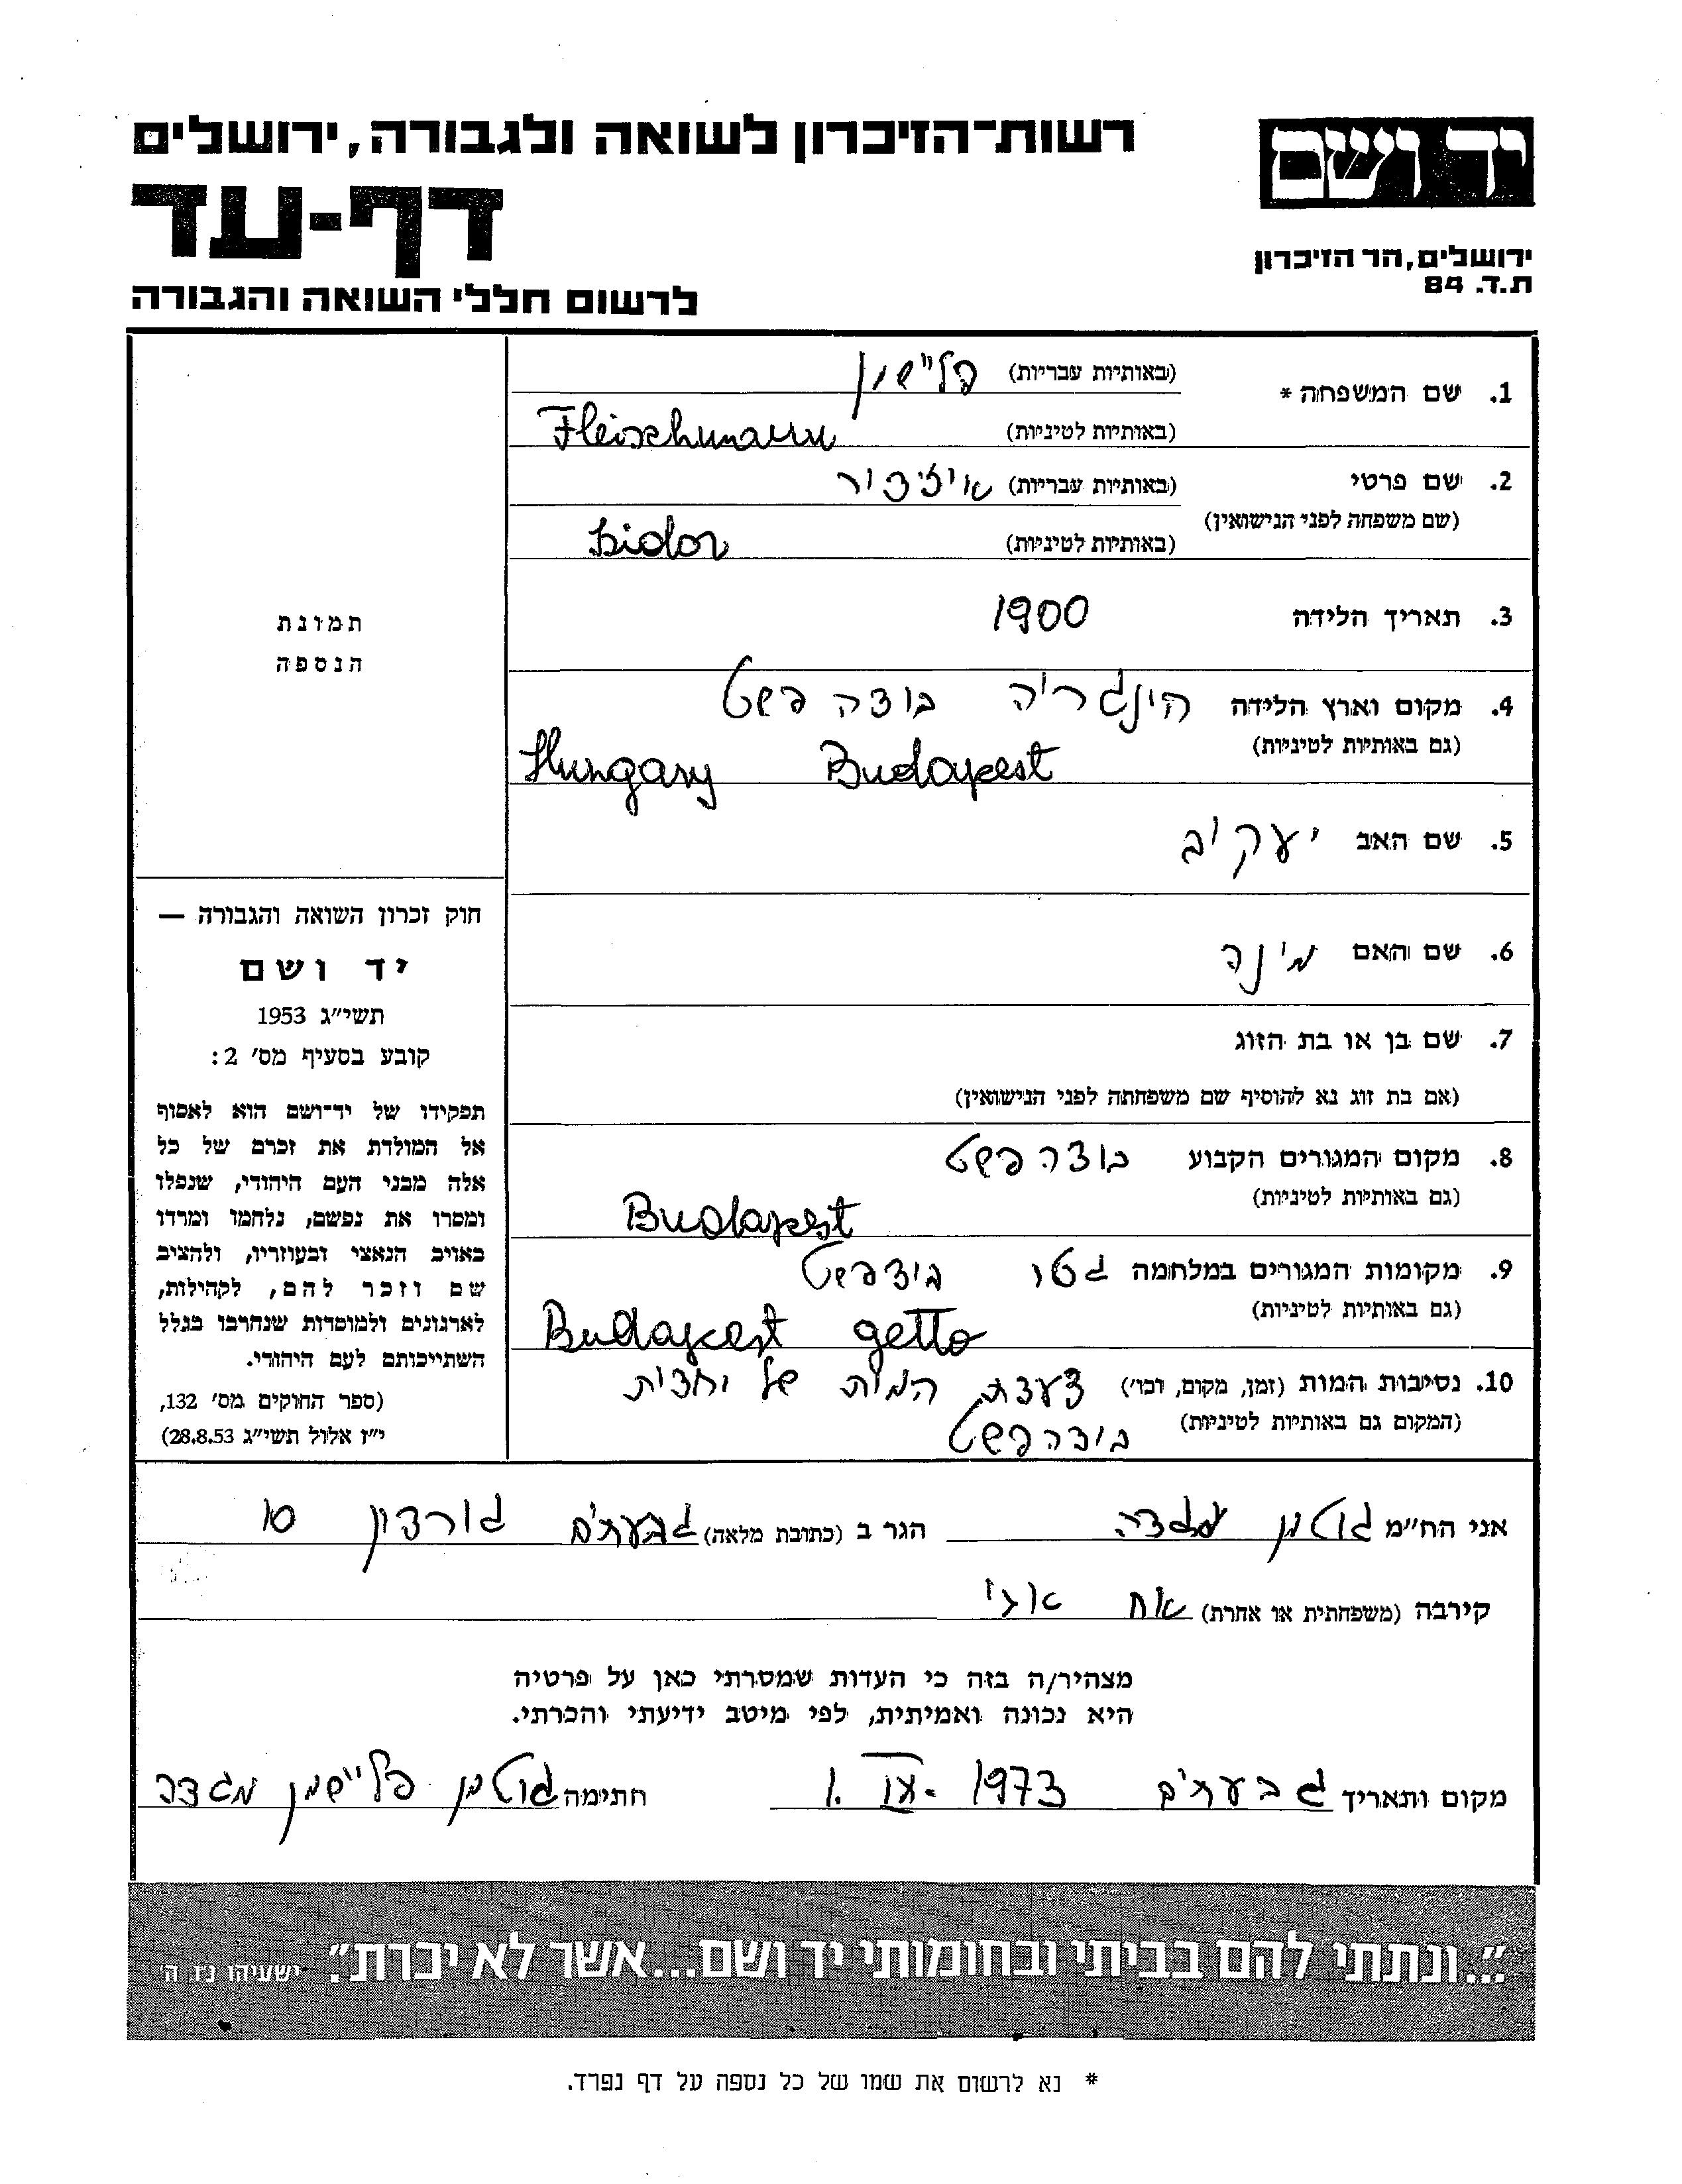 רשות־הזיכרון לשואה ולגבורה, ירושלים
יד ושם
דף-עד
ירושלים, הר הזיכרון
ת.ד. 84
לרשום חללי השואה והגבורה
1. שם המשפחה * (באותיות עבריות) פליישמן
(באותיות לטיניות) Fleischmann
2. שם פרטי (באותיות עבריות) איזידור
(שם משפחה לפני הנישואין)
(באותיות לטיניות) Isidor
3. תאריך הלידה 1900
4. מקום וארץ הלידה הונגריה בודה פשט
(גם באותיות לטיניות) Hungary Budapest
5. שם האב יעקוב
6. שם האם מינה
7. שם בן או בת הזוג
(אם בת זוג נא להוסיף שם משפחתה לפני הנישואין)
8. מקום המגורים הקבוע בודה פשט
(גם באותיות לטיניות) Budapest
9. מקומות המגורים במלחמה גטו בודפשט
(גם באותיות לטיניות) Budapest getto
10. נסיבות המות (זמן, מקום, וכו') צעדת המות של
(המקום גם באותיות לטיניות) בודהפשט
תמונת
הנספה
חוק זכרון השואה והגבורה —
יד ושם
תשי״ג 1953
קובע בסעיף מס׳ 2:
תפקידו של יד־ושם הוא לאסוף
אל המולדת את זכרם של כל
אלה מבני העם היהודי, שנפלו
ומסרו את נפשם, נלחמו ומרדו
באויב הנאצי ובעוזריו, ולהציב
שם וזכר להם, לקהילות,
לארגונים ולמוסדות שנחרבו בגלל
השתייכותם לעם היהודי.
(ספר החוקים מס׳ 132,
י״ז אלול תשי״ג 28.8.53)
אני הח״מ גוטמן מגדה הגר ב (כתובת מלאה) גבעתים גורדון 10
קירבה (משפחתית או אחרת) אח אבי
מצהיר/ה בזה כי העדות שמסרתי כאן על פרטיה
היא נכונה ואמיתית, לפי מיטב ידיעתי והכרתי.
מקום ותאריך גבעתים 1. IX. 1973 חתימה גוטמן פליישמן מגדה
״...ונתתי להם בביתי ובחומותי יד ושם...אשר לא יכרת״. ישעיהו נ״ו ה׳
* נא לרשום את שמו של כל נספה על דף נפרד.